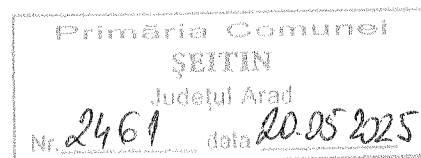 Primăria Comunei
ŞEITIN
Județul Arad
Nr. 2461 data 20.05 2025